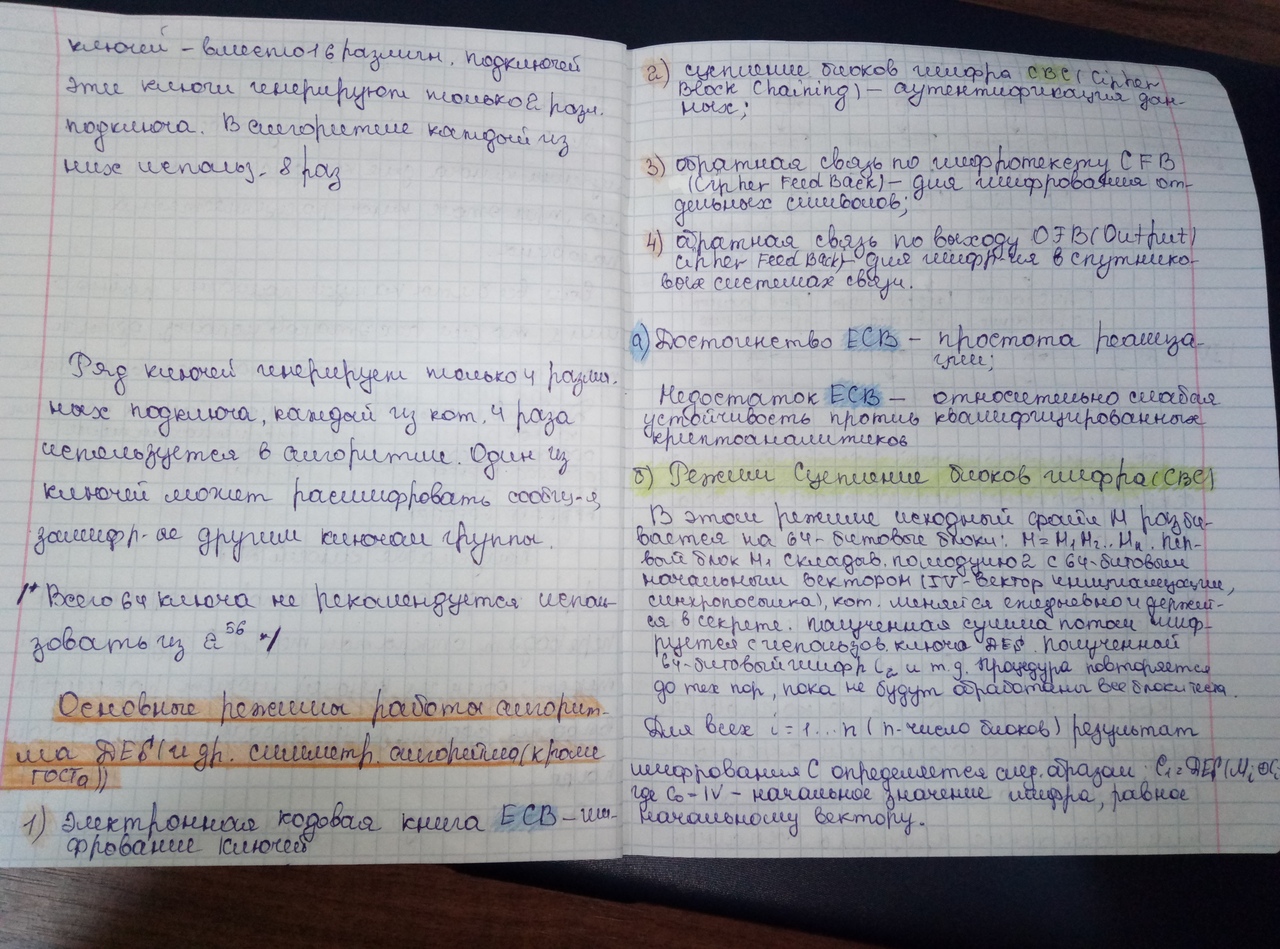 ключей – вместо 16 различн. подключей
эти ключи генерируют только 2 разл.
подключа. В алгоритме каждый из
них использ. 8 раз
Ряд ключей генерирует только 4 различ.
ных подключа, каждый из кот. 4 раза
используется в алгоритме. Один из
ключей может расшифровать сообщ-я,
зашифр-ые другим ключом группы.
/* Всего 64 ключа не рекомендуется исполь-
зовать из 2^56 */
Основные режимы работы алгорит-
ма DES (и др. симметр. алгоритмов (кроме
ГОСТа))
1) Электронная кодовая книга ECB – ши-
фрование ключей
2) сцепление блоков шифра CBC (Cipher
Block Chaining) – аутентификация дан-
ных;
3) обратная связь по шифротексту CFB
(Cipher Feed Back) – для шифрования от-
дельных символов;
4) обратная связь по выходу OFB (Output
Cipher Feed Back) – для шифр-ия в спутнико-
вых системах связи.
а) Достоинство ECB – простота реализа-
ции;
Недостаток ECB – относительно слабая
устойчивость против квалифицированных
криптоаналитиков
б) Режим Сцепление блоков шифра (CBC)
В этом режиме исходный файл M разби-
вается на 64-битовые блоки: M = M1 M2.. Mn. Пер-
вый блок M1 складыв. по модулю 2 с 64-битовым
начальным вектором (IV-вектор инициализации,
синхропосылка), кот. меняется ежедневно и держит-
ся в секрете. Полученная сумма потом шиф-
руется с использов. ключа DES. Полученный
64-битовый шифр C2 и т.д. Процедура повторяется
до тех пор, пока не будут обработаны все блоки
Для всех i = 1...n (n-число блоков) результат
шифрования C определяется след. образом: C1 = DES(Mi ⊕ Ci
где C0 – IV – начальное значение шифра, равное
начальному вектору.